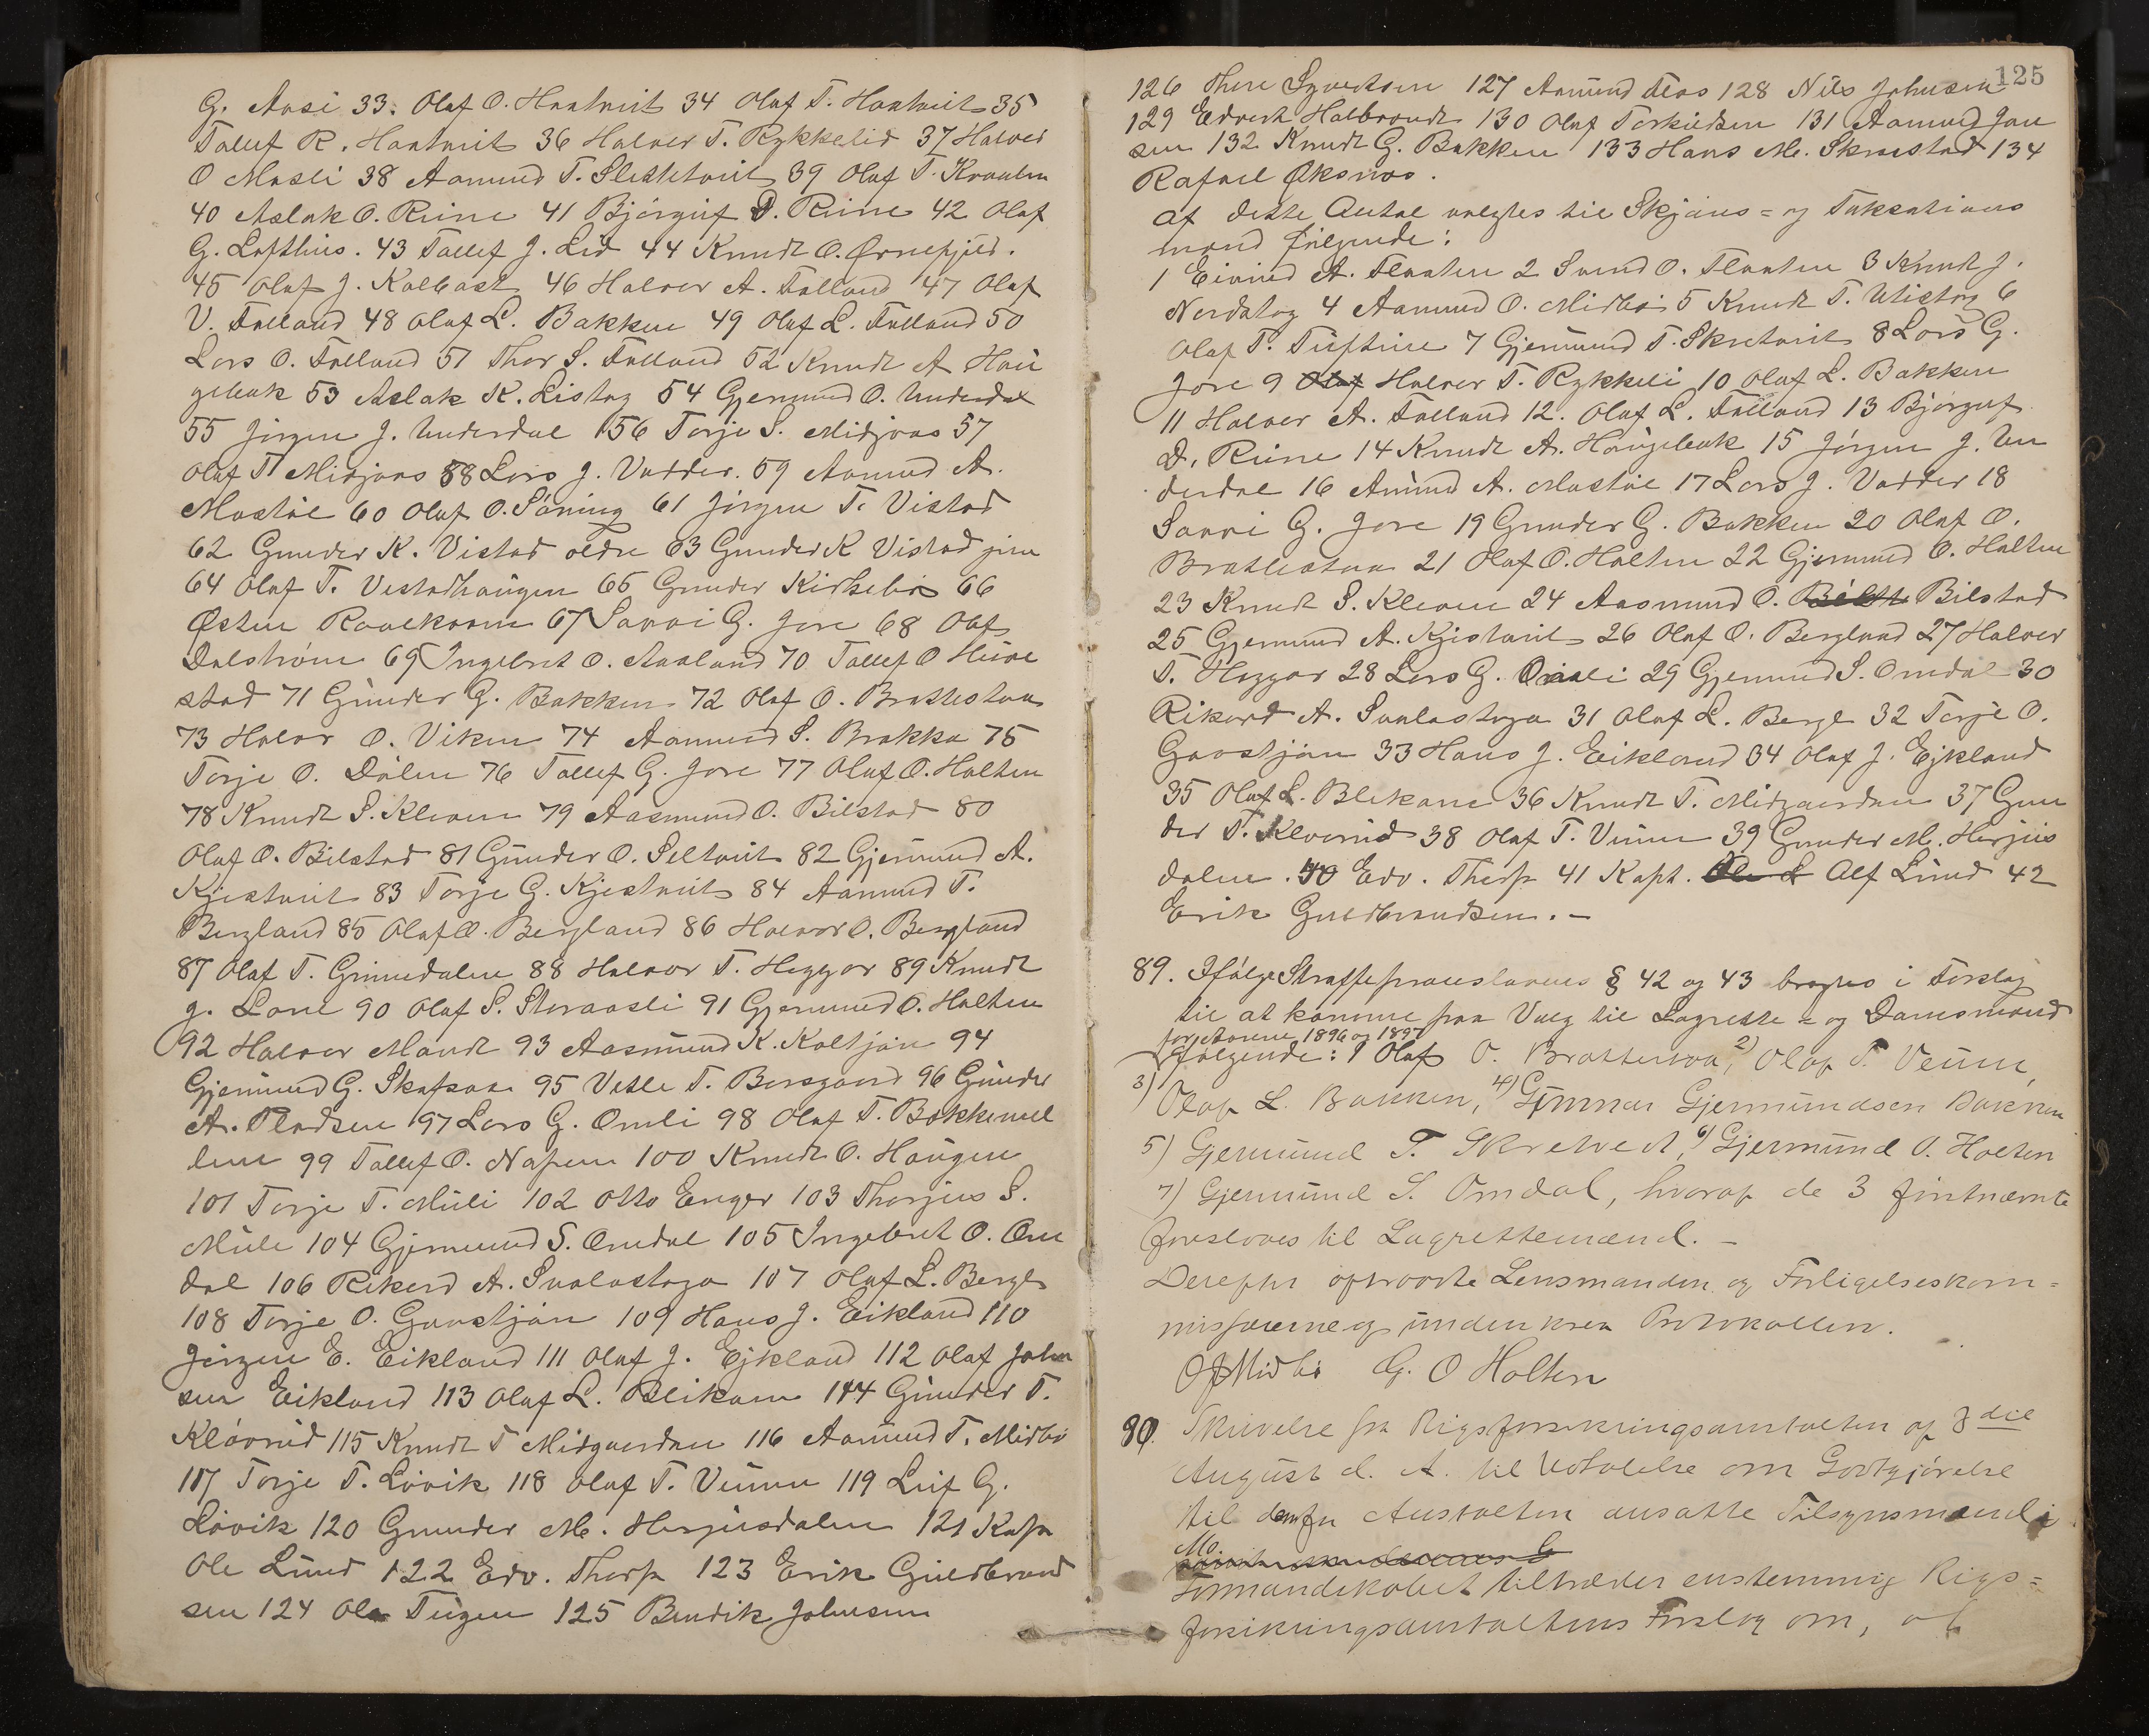 G. Aasi 33. Olaf O. Haatveit 34 Olaf T. Haatveit 35
Tallef R. Haatveit 36 Halvor T. Rykkelid 37 Halvor
O Masli 38 Aamund T. Slettetveit 39 Olaf T. Kraalen
40 Aslak O. Rine 41 Bjørguf D. Rine 42 Olaf
G. Lofthus. 43 Tallef J. Lid 44 Knudt O. Ørnefjeld.
45 Olaf J. Kalbast 46 Halvor A. Falland 47 Olaf
V. Falland 48 Olaf L. Bakken 49 Olaf L. Falland 50
Lars O. Falland 51 Thor S. Falland 52 Knudt A Hau
gebak 53 Aslak K. Listog 54 Gjermund O. Underdal
55 Jørgen J. Underdal 56 Torje S. Midjaas 57
Olaf T Midjaas 58 Lars J. Vadder. 59 Aamund A.
Mostøl 60 Olaf O. Søning 61 Jørgen T. Vistad
62 Gunder K. Vistad ældre 63 Gunder K Vistad jun
64 Olaf T. Vistadhaugen 65 Gunder Kirkebø 66
Østen Raaekaasa 67 Saavi G. Jore 68 Olaf
Dalstrøm 69 Ingebret O. Aasland 70 Tallef O Hive
stad 71 Gunder G. Bakken 72 Olaf O. Brattestaa
73 Halvor O. Viken 74 Aamund S. Brokka 75
Torje O. Dølen 76 Tallef G. Jore 77 Olaf O. Holten
78 Knudt S. Kleven 79 Aasmund O. Bilstad 80
Olaf O. Bilstad 81 Gunder O. Seltveit 82 Gjermund A.
Kjistveit 83 Torje G. Kjestveit 84 Aamund T.
Bergland 85 Olaf O. Bergland 86 Halvor O. Bergland
87 Olaf T. Grimedalen 88 Halvor T. Heggar 89 Knudt
J. Lone 90 Olaf S. Storaasli 91 Gjermund O. Holten
92 Halvor Mandt 93 Aasmund K. Koltjøn 94
Gjermund G. Skafsaa 95 Vetle T. Borgaard 96 Gunder
A. Pladsen 97 Lars G. Omli 98 Olaf T. Bakkemel
len 99 Tallef O. Napen 100 Knudt O. Haugen
101 Torje T. Muli 102 Otto Enger 103 Thorjus S.
Mule 104 Gjermund S. Omdal 105 Ingebret O. Om
dal 106 Rikard A. Svalastoga 107 Olaf L. Berge
108 Torje O. Gaastjøn 109 Hans J. Eikland 110
Jørgen E. Eikland 111 Olaf J. Ejkland 112 Olaf Johan
sen Eikland 113 Olaf L. Blikom 114 Gunder T.
Kløvrud 115 Knudt T Midgaarden 116 Aamund T. Midbø
117 Torje T. Løvik 118 Olaf T. Veum 119 Leif G.
Løvik 120 Gunder M. Herjusdalen 121 Kap
Ole Lund 122 Edv. Thorp 123 Erik Guldbrand
sen 124 Ola Tugen 125 Bendik Johnsen
125
126 Thore Syvertsen 127 Aamund Aas 128 Nils Johnsen
129 Edvart Halbrandt 130 Olaf Torkildsen 131 Aamund Jan
sen 132 Knudt G. Bakken 133 Hans M. Skrastad 134
Rafael Øksnæs.
Af dette Antal valgtes til Skjøns= og Taksations
mænd følgende:
1 Eivind A. Flaaten 2 Svend O. Flaaten 3 Knudt J.
Nordstog 4 Aamund O. Midbø 5 Knudt T. Utistog 6
Olaf T. Tuftine 7 Gjermund T. Skretveit 8 Lars G.
Jore 9 Olaf Halvor T. Rykkeli 10 Olaf L. Bakken
11 Halvor A. Falland 12. Olaf L. Falland 13 Bjørguf
D. Rine 14 Knudt A. Haugebak 15 Jørgen J. Un
derdal 16 Amund A. Mostøl 17 Lars J. Vadder 18
Saavi G. Jore 19 Gunder G. Bakken 20 Olaf O.
Brattestaa 21 Olaf O. Holten 22 Gjermund O. Holten
23 Knudt S. Kleven 24 Aasmund O. Bilstad
25 Gjermund A. Kjistveit 26 Olaf O. Bergland 27 Halvor
T. Heggar 28 Lars G. Omli 29 Gjermund S. Omdal 30
Rikard A. Svalastoga 31 Olaf L. Berge 32 Torje O.
Gaastjøn 33 Hans J. Eikland 34 Olaf J. Ejkland
35 Olaf L. Blikom 36 Knudt T. Midgaarden 37 Gun
der T. Kløvrud 38 Olaf T. Veum 39 Gunder M. Herjus
dalen. 40 Edv. Thorp 41 Kapt. Ole L Alf Lund 42
Erik Guldbrandsen. –
89. Ifølge Straffeproceslovens § 42 og 43 bragtes i Forslag
til at komme paa Valg til Lagrette= og Domsmænd
for Aarene 1896 og 1897
følgende: 1 Olaf O. Brattestaa, 2) Olaf T. Veum,
3) Olaf L. Bakken, 4) Gunnar Gjermundsen Bakken
5) Gjermund T. Skretveit, 6) Gjermund O. Holten
7) Gjermund S. Omdal, hvoraf de 3 førstnævnte
foreslaaes til Lagrettemænd. –
Derefter oplæste Lensmanden og Forligelseskom=
missærerne og underskrev Protokollen.
O J Midbø G. O Holten
90. Skrivelse fra Rigsforsikringsanstalten af 3die
August d. A. til Udtalelse om Godtgjørelse
til dem for Anstalten ansatte Tilsynsmænd i
Mo.
Formandskabet tiltræder enstemmig Rigs=
forsikringsanstaltens Forslag om, at